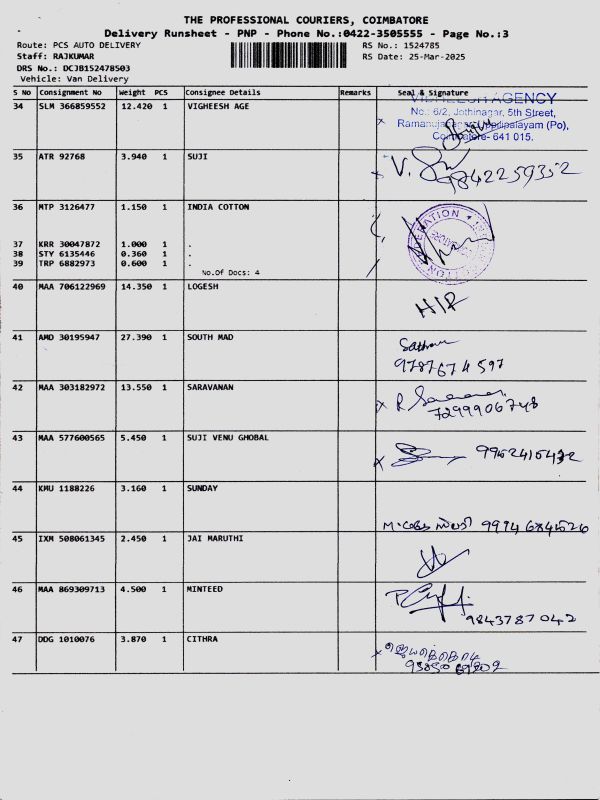 THE PROFESSIONAL COURIERS, COIMBATORE
Delivery Runsheet - PNP - Phone No.:0422-3505555 - Page No.:3
Route: PCS AUTO DELIVERY RS No.: 1524785
Staff: RAJKUMAR RS Date: 25-Mar-2025
DRS No.: DCJB152478503
Vehicle: Van Delivery
S No Consignment No Weight PCS Consignee Details Remarks Seal & Signature
34 SLM 366859552 12.420 1 VIGHEESH AGE
VIGHEESH AGENCY
No.: 6/2, Jothinagar, 5th Street,
(Po),
641 015.
35 ATR 92768 3.940 1 SUJI
9842259352
36 MTP 3126477 1.150 1 INDIA COTTON
37 KRR 30047872 1.000 1 .
38 STY 6135446 0.360 1 .
39 TRP 6882973 0.600 1 .
No.Of Docs: 4
40 MAA 706122969 14.350 1 LOGESH
41 AMD 30195947 27.390 1 SOUTH MAD
9787674597
42 MAA 303182972 13.550 1 SARAVANAN
7299906748
43 MAA 577600565 5.450 1 SUJI VENU GHOBAL
9962415432
44 KMU 1188226 3.160 1 SUNDAY
9994684526
45 IXM 508061345 2.450 1 JAI MARUTHI
46 MAA 869309713 4.500 1 MINTEED
9843787042
47 DDG 1010076 3.870 1 CITHRA